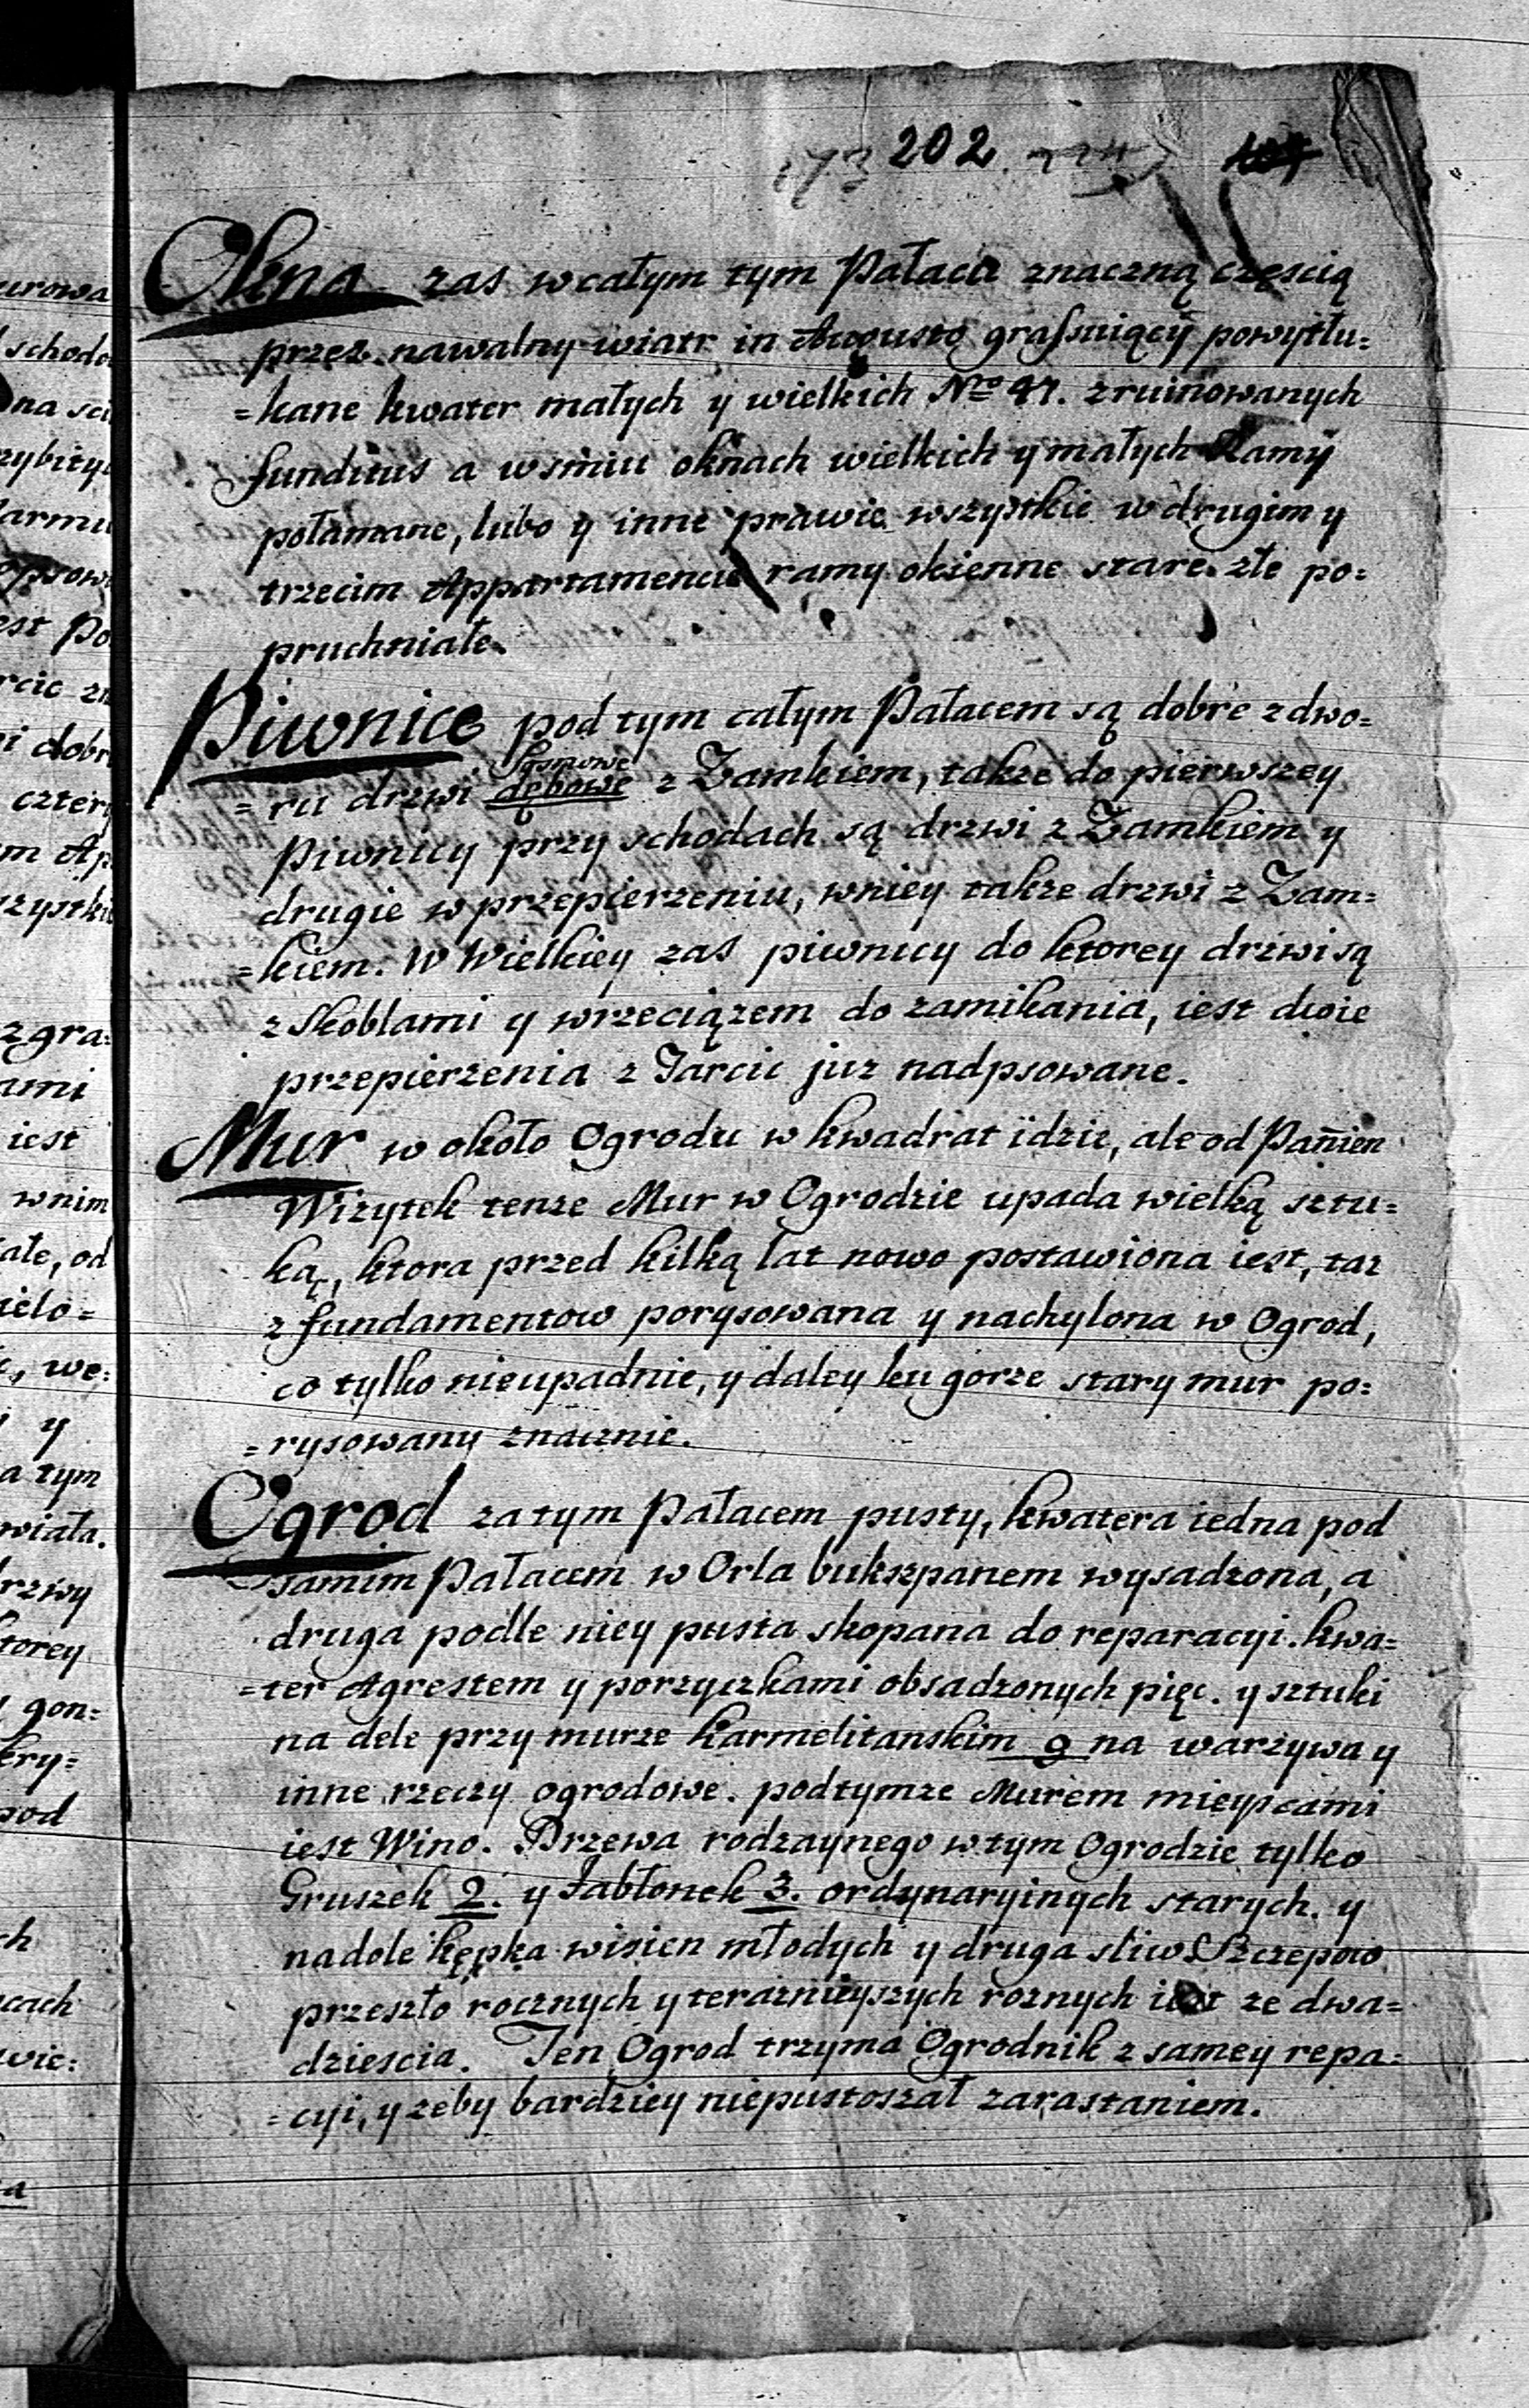 173 202.
Okna zas w całym tym Pałacu znaczną częscią
przez nawalny wiatr in Augusto grassuiący powytłu=
=kane kwater małych y wielkich No 47. zruinowanych
funditus a w smiu oknach wielkich y małych Ramy
połamane, lubo y inne prawie wszystkie w drugim y
trzecim Appartamencie ramy okienne stare złe po=
pruchniałe.
Piwnice pod tym całym Pałacem są dobre z dwo=
Sosnowe
=ru drzwi dębowe z Zamkiem, także do pierwszey
Piwnicy przy schodach są drzwi z Zamkiem y
drugie w przepierzeniu, w niey także drzwi z Zam=
=kiem. W Wielkiey zas piwnicy do ktorey drzwi są
z Skoblami y wrzeciązem do zamikania, iest dwie
przepierzenia z Tarcic juz nadpsowane.
Mur w około Ogrodu w kwadrat idzie, ale od Panien
Wizytek tenze Mur w Ogrodzie upada wielką sztu=
ką, ktora przed kilką lat nowo postawiona iest, taz
z fundamentow porysowana y nachylona w Ogrod,
co tylko nieupadnie, y daley ku gorze stary mur po=
=rysowany znacznie.
Ogrod za tym Pałacem pusty, kwatera iedna pod
samim Pałacem w Orla bukszpanem wysadzona, a
druga podle niey pusta skopana do reparacyi. kwa=
=ter Agrestem y porzyczkami obsadzonych pięc. y sztuki
na dele przy murze Karmelitanskim 9 na warzywa y
inne rzeczy ogrodowe. pod tymze Murem mieyscami
iest Wino. Drzewa rodzaynego w tym Ogrodzie tylko
Gruszek 2. y Jabłonek 3. ordynaryinych starych. y
na dole kępka wisien młodych y druga sliw Szczepow
przeszło rocznych y teraznieyszych roznych iest ze dwa=
dziescia. Ten Ogrod trzyma Ogrodnik z samey repa=
=cyi, y zeby bardziey niepustoszał zarastaniem.